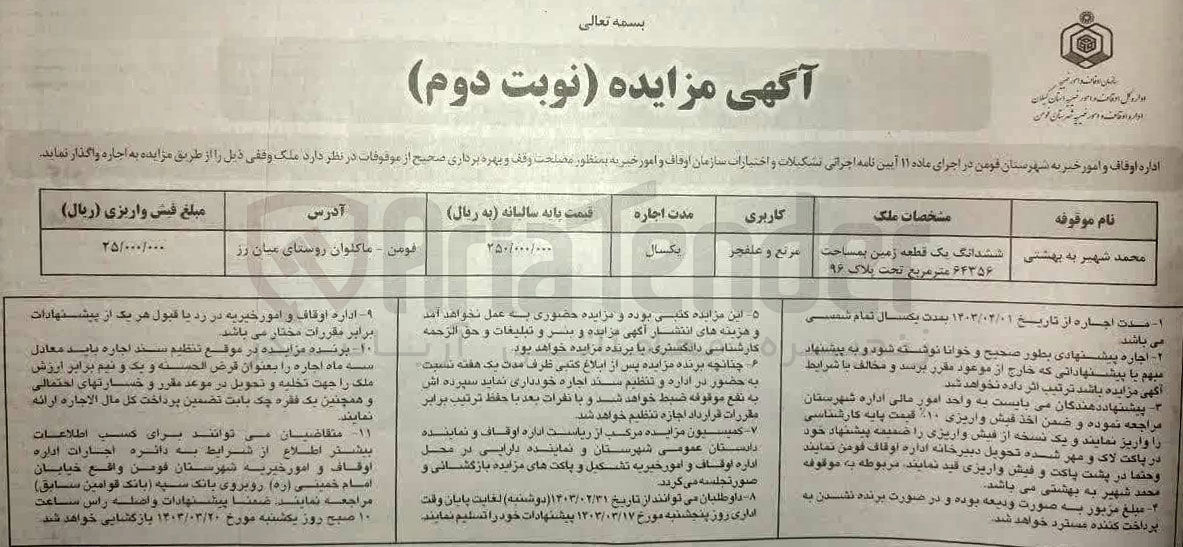 بسمه تعالی
آگهی مزایده (نوبت دوم)
سازمان اوقاف و امور خیریه
اداره کل اوقاف و امور خیریه استان گیلان
اداره اوقاف و امور خیریه شهرستان فومن
اداره اوقاف و امور خیریه شهرستان فومن در اجرای ماده ۱۱ آیین نامه اجرائی تشکیلات و اختیارات سازمان اوقاف و امور خیریه بمنظور مصلحت وقف و بهره برداری صحیح از موقوفات در نظر دارد ملک وقفی ذیل را از طریق مزایده به اجاره واگذار نماید.
نام موقوفه مشخصات ملک کاربری مدت اجاره قیمت پایه سالیانه (به ریال) آدرس مبلغ فیش واریزی (ریال)
محمد شهیر به بهشتی ششدانگ یک قطعه زمین بمساحت مرتع و علفچر یکسال ۲۵۰/۰۰۰/۰۰۰ فومن - ماکلوان روستای میان رز ۲۵/۰۰۰/۰۰۰
۶۴۳۵۶ مترمربع تحت پلاک ۹۶
AriaTender
۱-مدت اجاره از تاریخ ۱۴۰۳/۰۴/۰۱ بمدت یکسال تمام شمسی
می باشد.
۲- اجاره پیشنهادی بطور صحیح و خوانا نوشته شود و به پیشنهاد
مبهم یا پیشنهاداتی که خارج از موعود مقرر برسد و مخالف با شرایط
آگهی مزایده باشد ترتیب اثر داده نخواهد شد.
۳- پیشنهاددهندگان می بایست به واحد امور مالی اداره شهرستان
مراجعه نموده و ضمن اخذ فیش واریزی ۱۰٪ قیمت پایه کارشناسی
را واریز نمایند و یک نسخه از فیش واریزی را ضمیمه پیشنهاد خود
در پاکت لاک و مهر شده تحویل دبیرخانه اداره اوقاف فومن نمایند
وحتما در پشت پاکت و فیش واریزی قید نمایند، مربوطه به موقوفه
محمد شهیر به بهشتی می باشد.
۴- مبلغ مزبور به صورت ودیعه بوده و در صورت برنده نشدن به
پرداخت کننده مسترد خواهد شد.
۵- این مزایده کتبی بوده و مزایده حضوری به عمل نخواهد آمد
و هزینه های انتشار آگهی مزایده و بنر و تبلیغات و حق الزحمه
کارشناسی دادگستری، با برنده مزایده خواهد بود.
۶- چنانچه برنده مزایده پس از ابلاغ کتبی ظرف مدت یک هفته نسبت
به حضور در اداره و تنظیم سند اجاره خودداری نماید سپرده اش
به نفع موقوفه ضبط خواهد شد و با نفرات بعد با حفظ ترتیب برابر
مقررات قرارداد اجازه تنظیم خواهد شد.
۷- کمیسیون مزایده مرکب از ریاست اداره اوقاف و نماینده
دادستان عمومی شهرستان و نماینده دارایی در محل
اداره اوقاف و امور خیریه تشکیل و پاکت های مزایده بازگشائی و
صورتجلسه می گردد.
۸-داوطلبان می توانند از تاریخ ۱۴۰۳/۰۲/۳۱(دوشنبه) لغایت پایان وقت
اداری روز پنجشنبه مورخ ۱۴۰۳/۰۳/۱۷ پیشنهادات خود را تسلیم نمایند.
۹- اداره اوقاف و امور خیریه در رد یا قبول هر یک از پیشنهادات
برابر مقررات مختار می باشد.
۱۰- برنده مزایده در موقع تنظیم سند اجاره باید معادل
سه ماه اجاره را بعنوان قرض الحسنه و یک و نیم برابر ارزش
ملک را جهت تخلیه و تحویل در موعد مقرر و خسارتهای احتمالی
و همچنین یک فقره چک بابت تضمین پرداخت کل مال الاجاره ارائه
نمایند.
۱۱- متقاضیان می توانند برای کسب اطلاعات
بیشتر اطلاع از شرایط به دائره اجارات اداره
اوقاف و امور خیریه شهرستان فومن واقع خیابان
امام خمینی (ره) روبروی بانک سپه (بانک قوامین سابق)
مراجعه نمایند. ضمنا پیشنهادات واصله راس ساعت
۱۰ صبح روز یکشنبه مورخ ۱۴۰۳/۰۳/۲۰ بازگشایی خواهد شد.